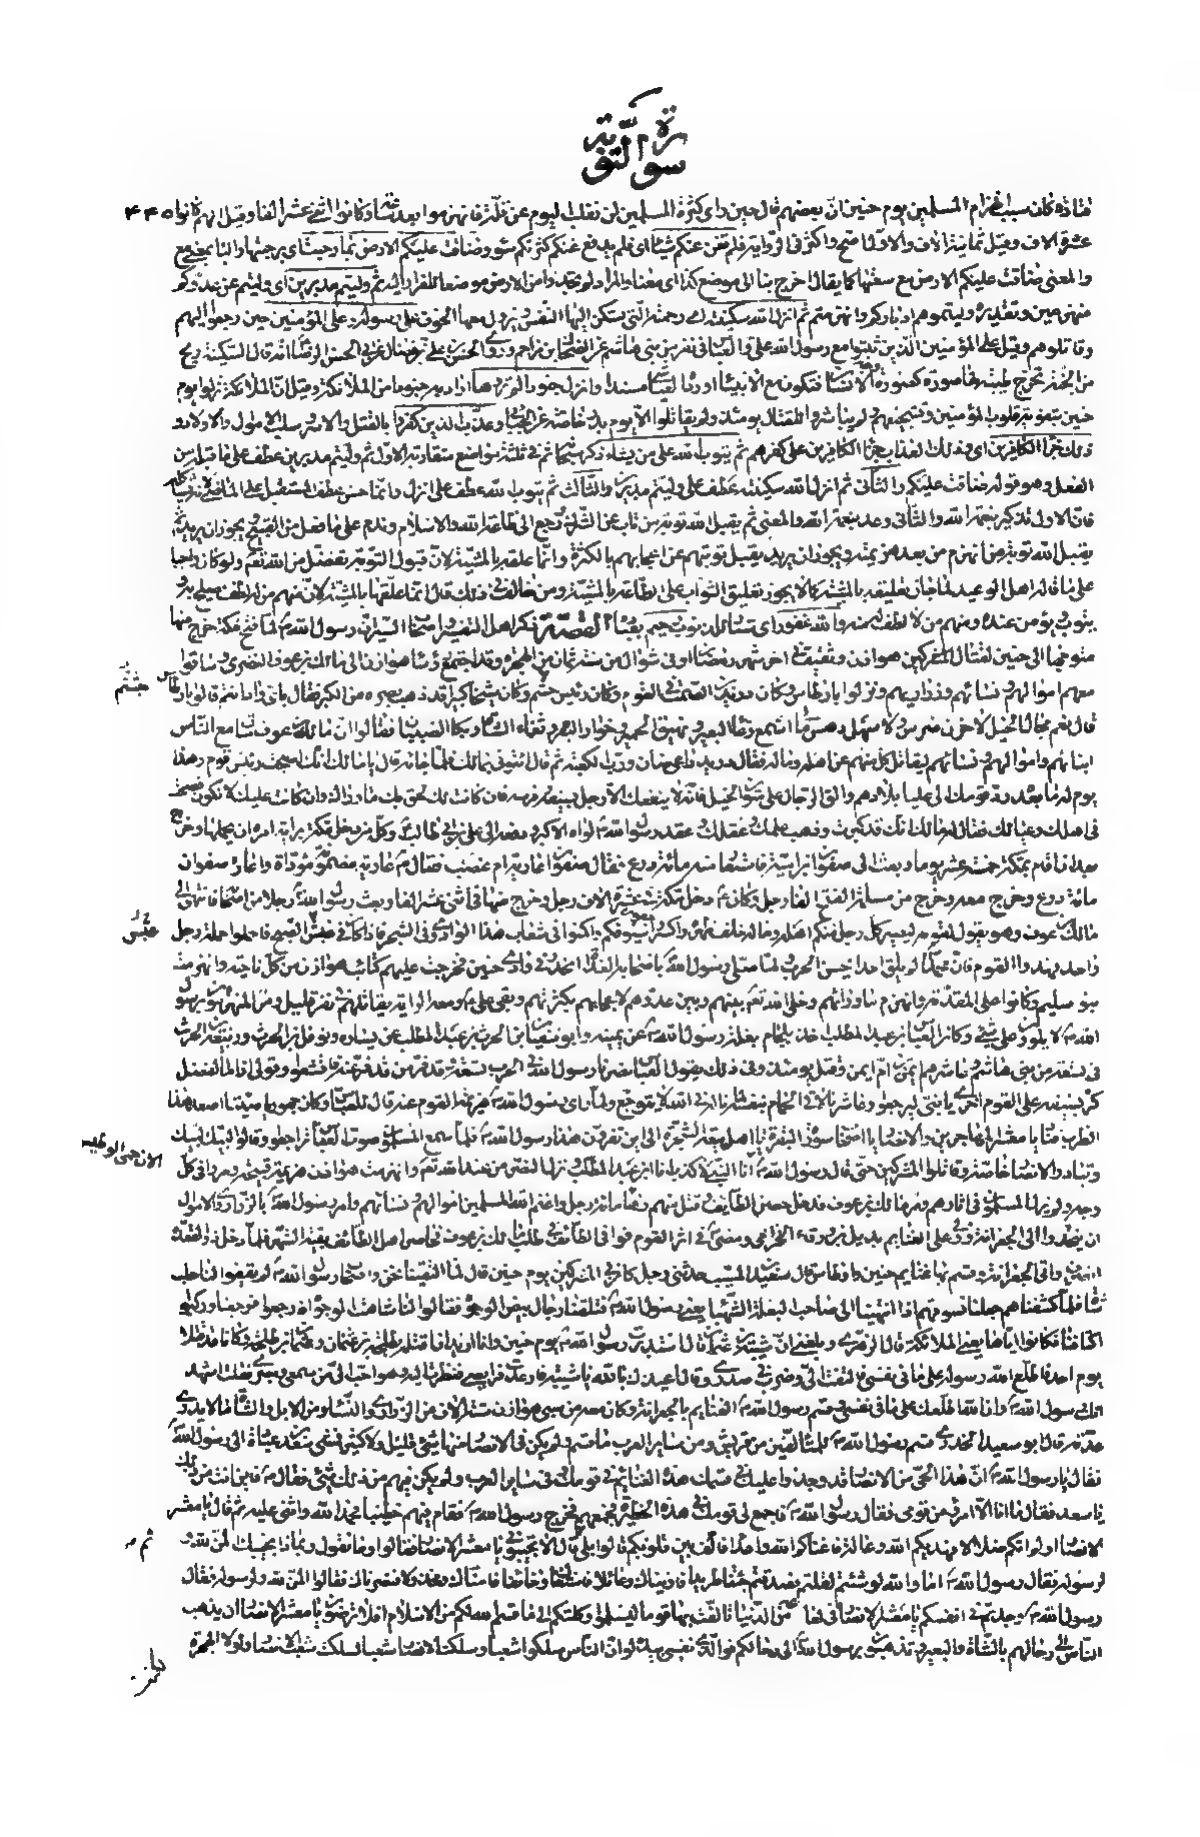 سورة التوبة
قتادة كان سبب انهزام المسلمين يوم حنين ان بعضهم قال حين راى كثرة المسلمين لن نغلب اليوم عن قلة فانهزموا بعد ساعة وكانوا اثنى عشر الفا وقيل انهم كانوا ٤٤٥
عشرة الاف وقيل ثمانية الاف والاول اصح واكثر فى الرواية فلم تغن عنكم شيئا اى فلم يدفع عنكم كثرتكم سوء وضاقت عليكم الارض بما رحبت اى برحبها والباء بمعنى مع
والمعنى ضاقت عليكم الارض مع سعتها كما يقال اخرج بنا الى موضع كذا اى معنا والمراد لم تجدوا من الارض موضعا للفرار اليه ثم وليتم مدبرين اى وليتم عن عدوكم
منهزمين وتقديره وليتموهم ادباركم وانهزمتم ثم انزل الله سكينته اى رحمته التى تسكن اليها النفس ويزول معها الخوف على رسوله وعلى المؤمنين حين رجعوا اليهم
وقاتلوهم وقيل على المؤمنين الذين ثبتوا مع رسول الله على والعباس فى نفر من بنى هاشم عن الضحاك بن مزاحم وروى الحسن بن على بن فضال عن ابى الحسن الرضا انه قال السكينة ريح
من الجنة تخرج طيبة لها صورة كصورة وجه الانسان فتكون مع الانبياء اورده العياشى مسندا وانزل جنودا لم تروها اراد به جنودا من الملائكة وقيل ان الملائكة نزلوا يوم
حنين بتقوية قلوب المؤمنين وتشجيعهم ولم يباشروا القتال يومئذ ولم يقاتلوا الا يوم بدر خاصة عن الجبائى وعذب الذين كفروا بالقتل والاسر وسلب الاموال والاولاد
وذلك جزاء الكافرين اى وذلك العذاب جزاء الكافرين على كفرهم ثم يتوب الله على من يشاء ذكر سبحانه ثم فى ثلثة مواضع متقاربة الاول ثم وليتم مدبرين عطف على ما قبله من
الفعل وهو قوله ضاقت عليكم والثانى ثم انزل الله سكينته عطف على وليتم مدبرين والثالث ثم يتوب الله عطف على انزل وانما حسن عطف المستقبل على الماضى
فان الاول تذكير بنعمة الله والثانى وعد بنعمة الله والمعنى ثم يقبل الله توبة من تاب عن الشرك ورجع الى طاعة الله والاسلام وندم على ما فعل من القبيح ويجوز ان يريد ثم
يقبل الله توبة من انهزم من بعد هزيمته ويجوز ان يريد يقبل توبتهم عن اعجابهم بالكثرة وانما علقه بالمشية لان قبول التوبة تفضل من الله تعالى ولو كان واجبا
على ما قاله اهل الوعيد لما جاز تعليقه بالمشية كما لا يجوز تعليق الثواب على الطاعة بالمشية ومن خالف فى ذلك قال انما علقها بالمشية لان منهم من له لطف يصلح به و
يتوب ويؤمن عنده ومنهم من لا لطف له منه والله غفور اى ستار للذنوب رحيم بعباده القصة ذكر اهل التفسير واصحاب السير ان رسول الله لما فتح مكة خرج منها
متوجها الى حنين لقتال المشركين هوازن وثقيف فى اخر شهر رمضان او فى شوال من سنة ثمان من الهجرة وقد اجتمع رؤساء هوازن الى مالك بن عوف النصرى وساقوا
معهم اموالهم ونسائهم وذراريهم ونزلوا باوطاس وكان دريد بن الصمة فى القوم وكان رئيس جشم وكان شيخا كبيرا قد ذهب بصره من الكبر فقال باى واد انتم قالوا باوطاس
جشم
قال نعم مجال الخيل لا حزن ضرس ولا سهل دهس ما لى اسمع رغاء البعير ونهيق الحمير وخوار البقر وثغاء الشاء وبكاء الصبيان فقالوا ان مالك بن عوف ساق مع الناس
ابنائهم واموالهم ونسائهم ليقاتل كل منهم عن اهله وماله فقال دريد راعى ضان ورب الكعبة ثم قال ائتونى بمالك فلما جائه قال يا مالك انك اصبحت رئيس قومك وهذا
يوم له ما بعده رد قومك الى عليا بلادهم والق الرجال على متون الخيل فانه لا ينفعك الا رجل بسيفه وفرسه فان كانت لك لحق بك من ورائك وان كانت عليك لا تكون فضحت
فى اهلك وعيالك فقال له مالك انك قد كبرت وذهب علمك وعقلك وعقد رسول الله لوائه الاكبر ودفعه الى على بن ابى طالب وكل من دخل مكة براية امره ان يحملها وخرج
بعد ان اقام بمكة خمسة عشر يوما وبعث الى صفوان بن امية فاستعار منه مائة درع فقال صفوان اعارية ام غصب فقال عارية مضمونة مؤداة فاعاره صفوان
مائة درع وخرج معه وخرج من مسلمة الفتح الفا رجل وكان دخل مكة فى عشرة الاف رجل وخرج منها فى اثنى عشر الفا وبعث رسول الله رجلا من اصحابه فانتهى الى
مالك بن عوف وهو يقول لقومه ليصير كل رجل منكم اهله وماله خلف ظهره واكسروا جفون سيوفكم واكمنوا فى شعاب هذا الوادى وفى الشجر فاذا كان فى غبش الصبح فاحملوا حملة رجل
غبش
واحد فهدوا القوم فان محمدا لم يلق احدا يحسن الحرب ولما صلى رسول الله باصحابه الغداة انحدر فى وادى حنين فخرجت عليهم كتائب هوازن من كل ناحية وانهزمت
بنو سليم وكانوا على المقدمة وانهزم ما ورائهم وخلى الله تعالى بينهم وبين عدوهم لاعجابهم بكثرتهم وبقى على ومعه الراية يقاتلهم فى نفر قليل ومر المنهزمون برسول
الله لا يلوون على شىء وكان العباس بن عبد المطلب اخذ بلجام بغلة رسول الله عن يمينه وابو سفيان بن الحرث بن عبد المطلب عن يساره ونوفل بن الحرث وربيعة بن الحرث
فى تسعة من بنى هاشم وعاشرهم ايمن بن ام ايمن وقتل يومئذ وفى ذلك يقول العباس نصرنا رسول الله فى الحرب تسعة وقد فر من قد فر عنه فاقشعوا وقولى اذا ما الفضل
كر بسيفه على القوم اخرى يا بنى ليرجعوا وعاشرنا لاقى الحمام بنفسه لما ناله فى الله لا يتوجع ولما راى رسول الله هزيمة القوم عنه قال للعباس وكان جهوريا صيتا اصعد هذا
الظرب فناد يا معشر المهاجرين والانصار يا اصحاب سورة البقرة يا اهل بيعة الشجرة الى اين تفرون هذا رسول الله فلما سمع المسلمون صوت العباس تراجعوا وقالوا لبيك لبيك
وتبادر الانصار خاصة وقاتلوا المشركين حتى قال رسول الله الان حمى الوطيس انا النبى لا كذب انا ابن عبد المطلب ونزل النصر من عند الله تعالى وانهزمت هوازن هزيمة قبيحة ومروا فى كل
الان حمى الوطيس
وجه ولم يزل المسلمون فى اثارهم ومر مالك بن عوف فدخل حصن الطائف وقتل منهم زهاء مائة رجل واغنم الله المسلمين اموالهم ونسائهم وامر رسول الله بالذرارى والاموال
ان تحدر الى الجعرانة وولى على الغنايم بديل بن ورقاء الخزاعى ومضى فى اثر القوم فوافى الطائف فى طلب مالك بن عوف فحاصر اهل الطائف بقية الشهر فلما دخل ذو القعدة
انصرف واتى الجعرانة وقسم بها غنايم حنين واوطاس قال سعيد بن المسيب حدثنى رجل كان فى المشركين يوم حنين قال لما التقينا نحن واصحاب رسول الله لم يقفوا لنا حلب
شاة فلما كشفناهم جعلنا نسوقهم اذا انتهينا الى صاحب البغلة الشهباء يعنى رسول الله فتلقانا رجال بيض الوجوه فقالوا لنا شاهت الوجوه ارجعوا فرجعنا وركبوا
اكتافنا فكانوا اياها يعنى الملائكة قال الزهرى وبلغنى ان شيبة بن عثمان قال استدبرت رسول الله يوم حنين وانا اريد ان اقتله بطلحة بن عثمان وعثمان بن طلحة وكانا قد قتلا
يوم احد فاطلع الله رسوله على ما فى نفسى فالتفت الى وضرب فى صدرى وقال اعيذك بالله يا شيبة فارعدت فرايصى فنظرت اليه وهو احب الى من سمعى وبصرى فقلت اشهد
انك رسول الله وان الله اطلعك على ما فى نفسى وقسم رسول الله الغنايم بالجعرانة وكان معه من سبى هوازن ستة الاف من الذرارى والنساء ومن الابل والشاء ما لا يدرى
عدته قال ابو سعيد الخدرى قسم رسول الله للمتألفين من قريش ومن ساير العرب ما قسم ولم يكن فى الانصار منها شىء قليل ولا كثير فمشى سعد بن عبادة الى رسول الله
فقال يا رسول الله ان هذا الحى من الانصار قد وجدوا عليك فى قسمك هذه الغنايم فى قومك وفى ساير العرب ولم يكن فيهم من ذلك شىء فقال فاين انت من ذلك
يا سعد فقال ما انا الا امرؤ من قومى فقال رسول الله فاجمع لى قومك فى هذه الحظيرة فجمعهم فخرج رسول الله فقام فيهم خطيبا فحمد الله واثنى عليه ثم قال يا معشر
الانصار اولم اتكم ضلالا فهديكم الله وعالة فاغناكم الله واعداء فالف بين قلوبكم قالوا بلى قال الا تجيبونى يا معشر الانصار فقالوا وما نقول وبماذا نجيبك المن لله و
ثم
لرسوله فقال رسول الله اما والله لو شئتم لقلتم فصدقتم جئتنا طريدا فاويناك وعائلا فاسيناك وخائفا فامناك ومخذولا فنصرناك فقالوا المن لله ولرسوله فقال
رسول الله وجدتم فى انفسكم يا معشر الانصار فى لعاعة من الدنيا تالفت بها قوما ليسلموا ووكلتكم الى ما قسم الله لكم من الاسلام افلا ترضون يا معشر الانصار ان يذهب
الناس الى رحالهم بالشاة والبعير وتذهبون برسول الله الى رحالكم فوالذى نفسى بيده لو ان الناس سلكوا شعبا وسلكت الانصار شعبا لسلكت شعب الانصار ولولا الهجرة